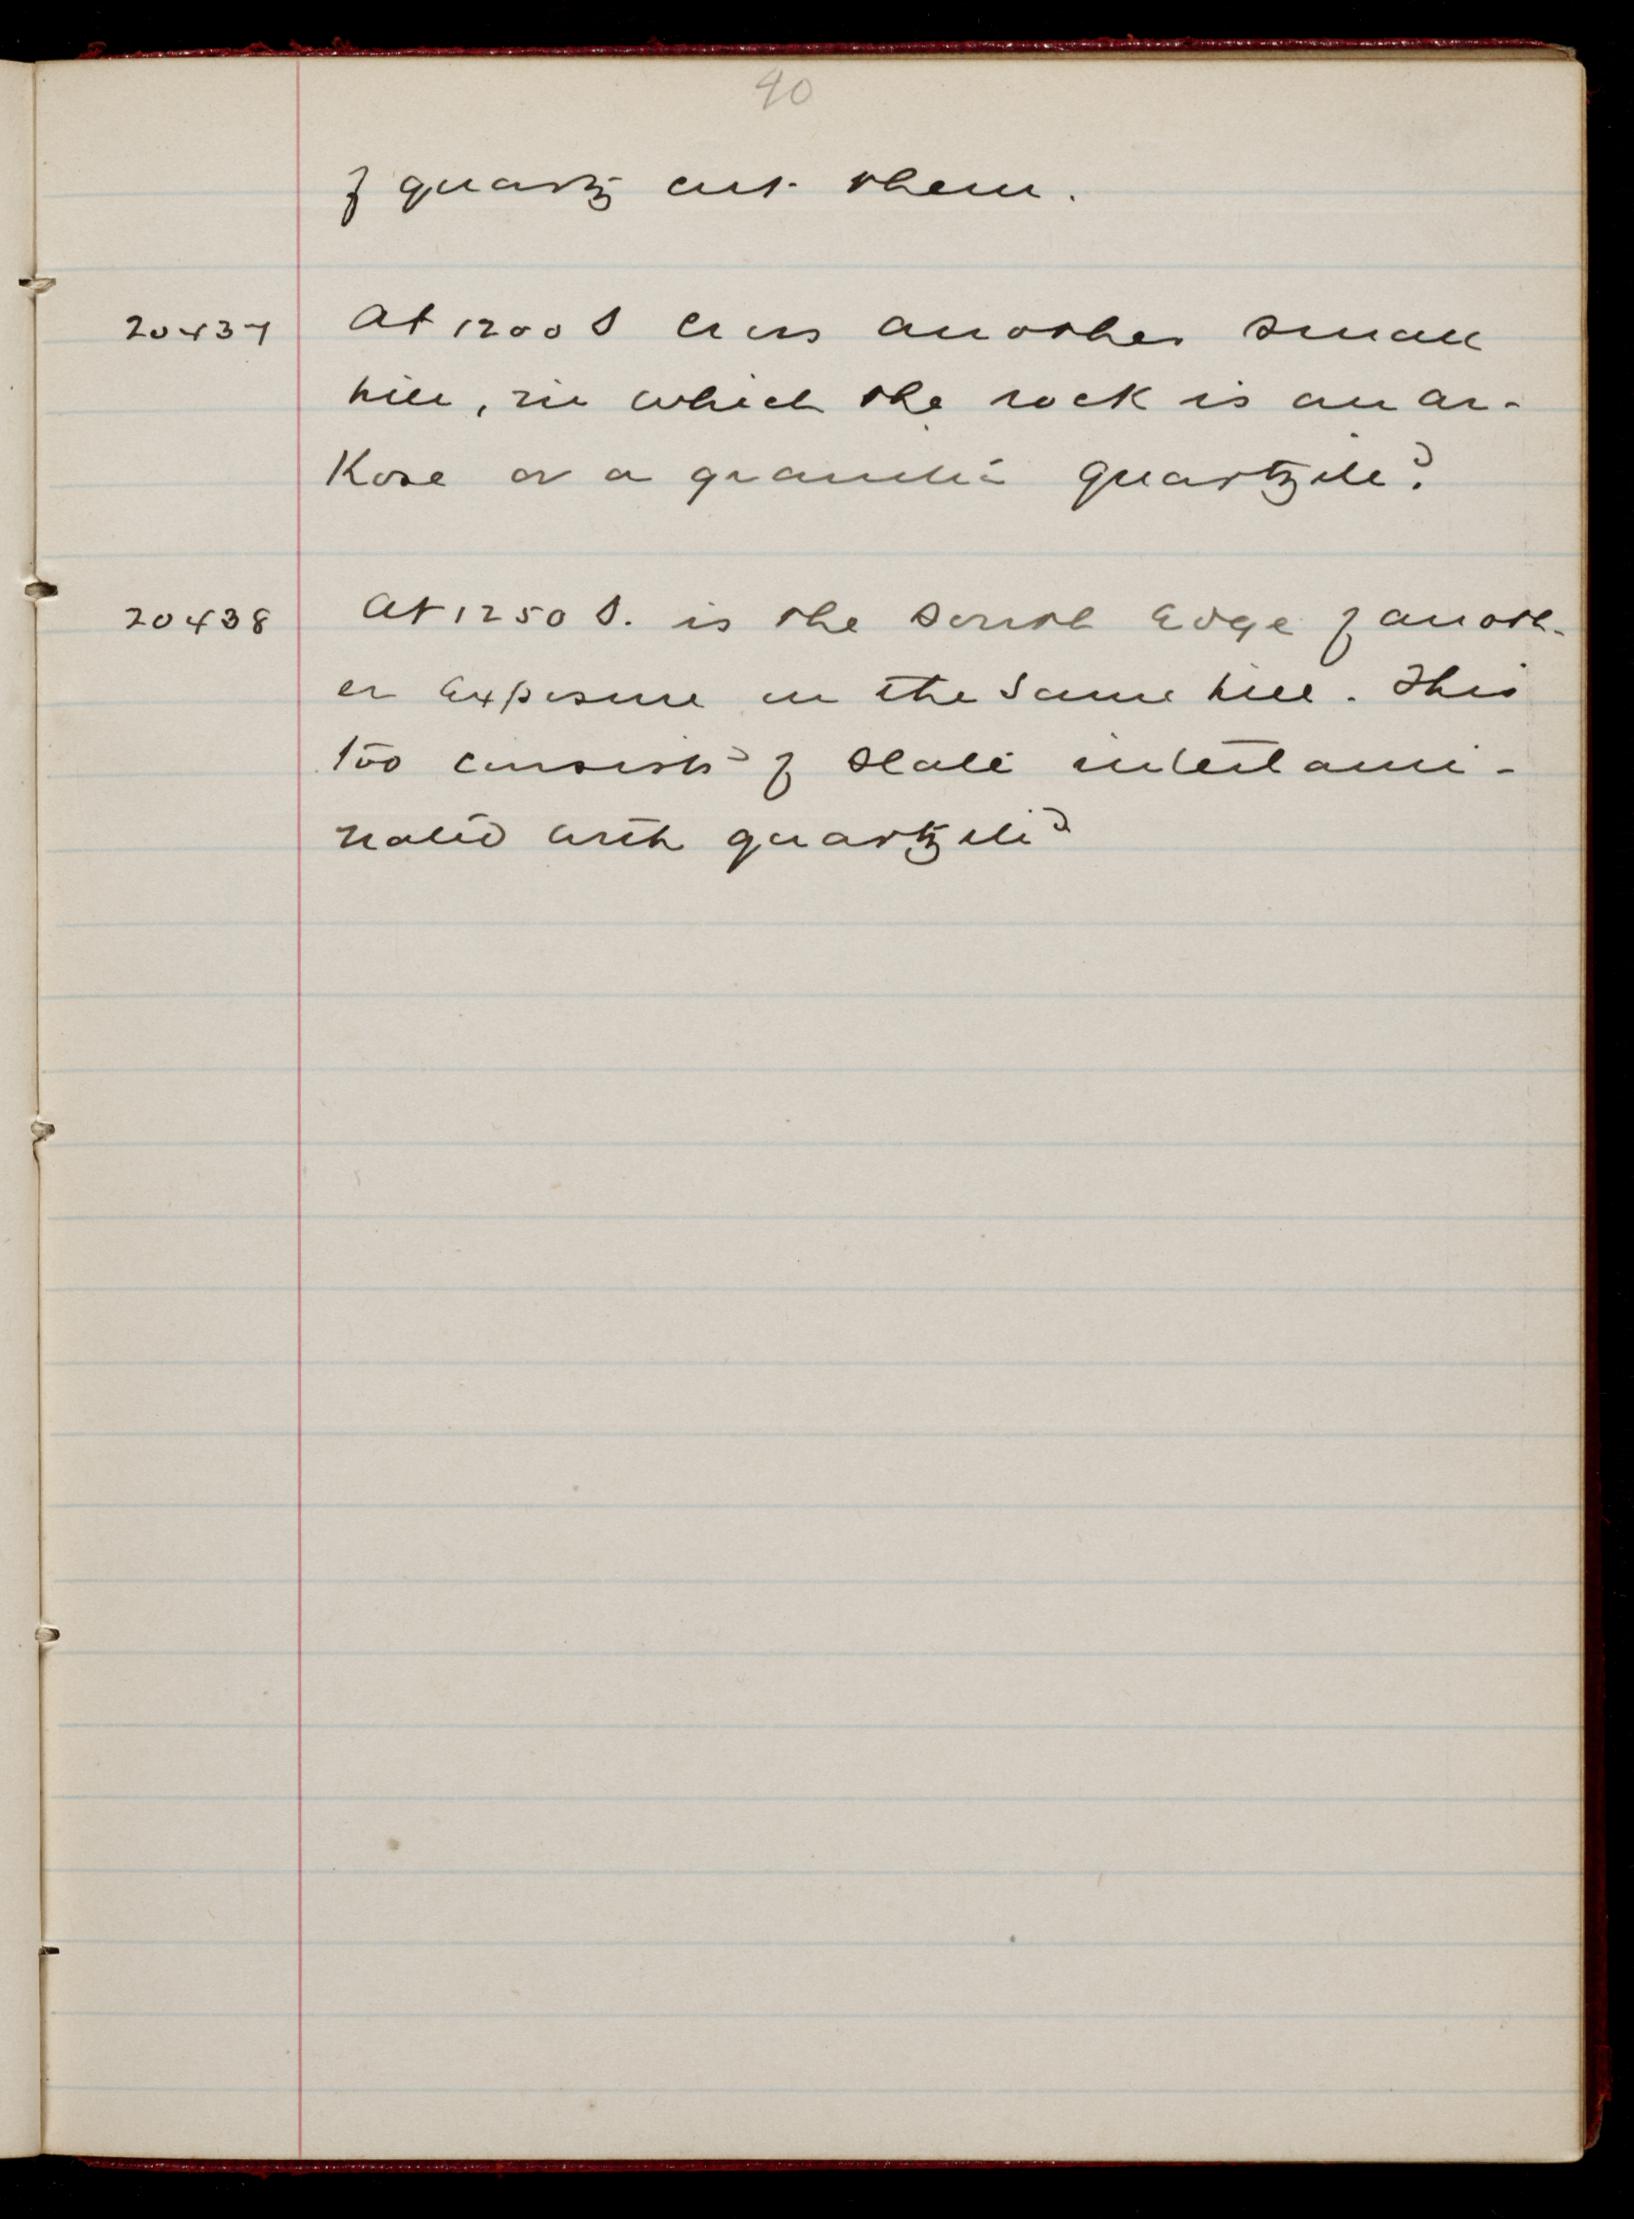 40
of quartz cut them.
20437 At 1200 S cross another small
hill, in which the rock is an ar-
kose or a granitic quartzite?
20438 At 1250 S. is the south edge of anoth-
er exposure on the same hill. This
too consists of slate interlami-
nated with quartzite